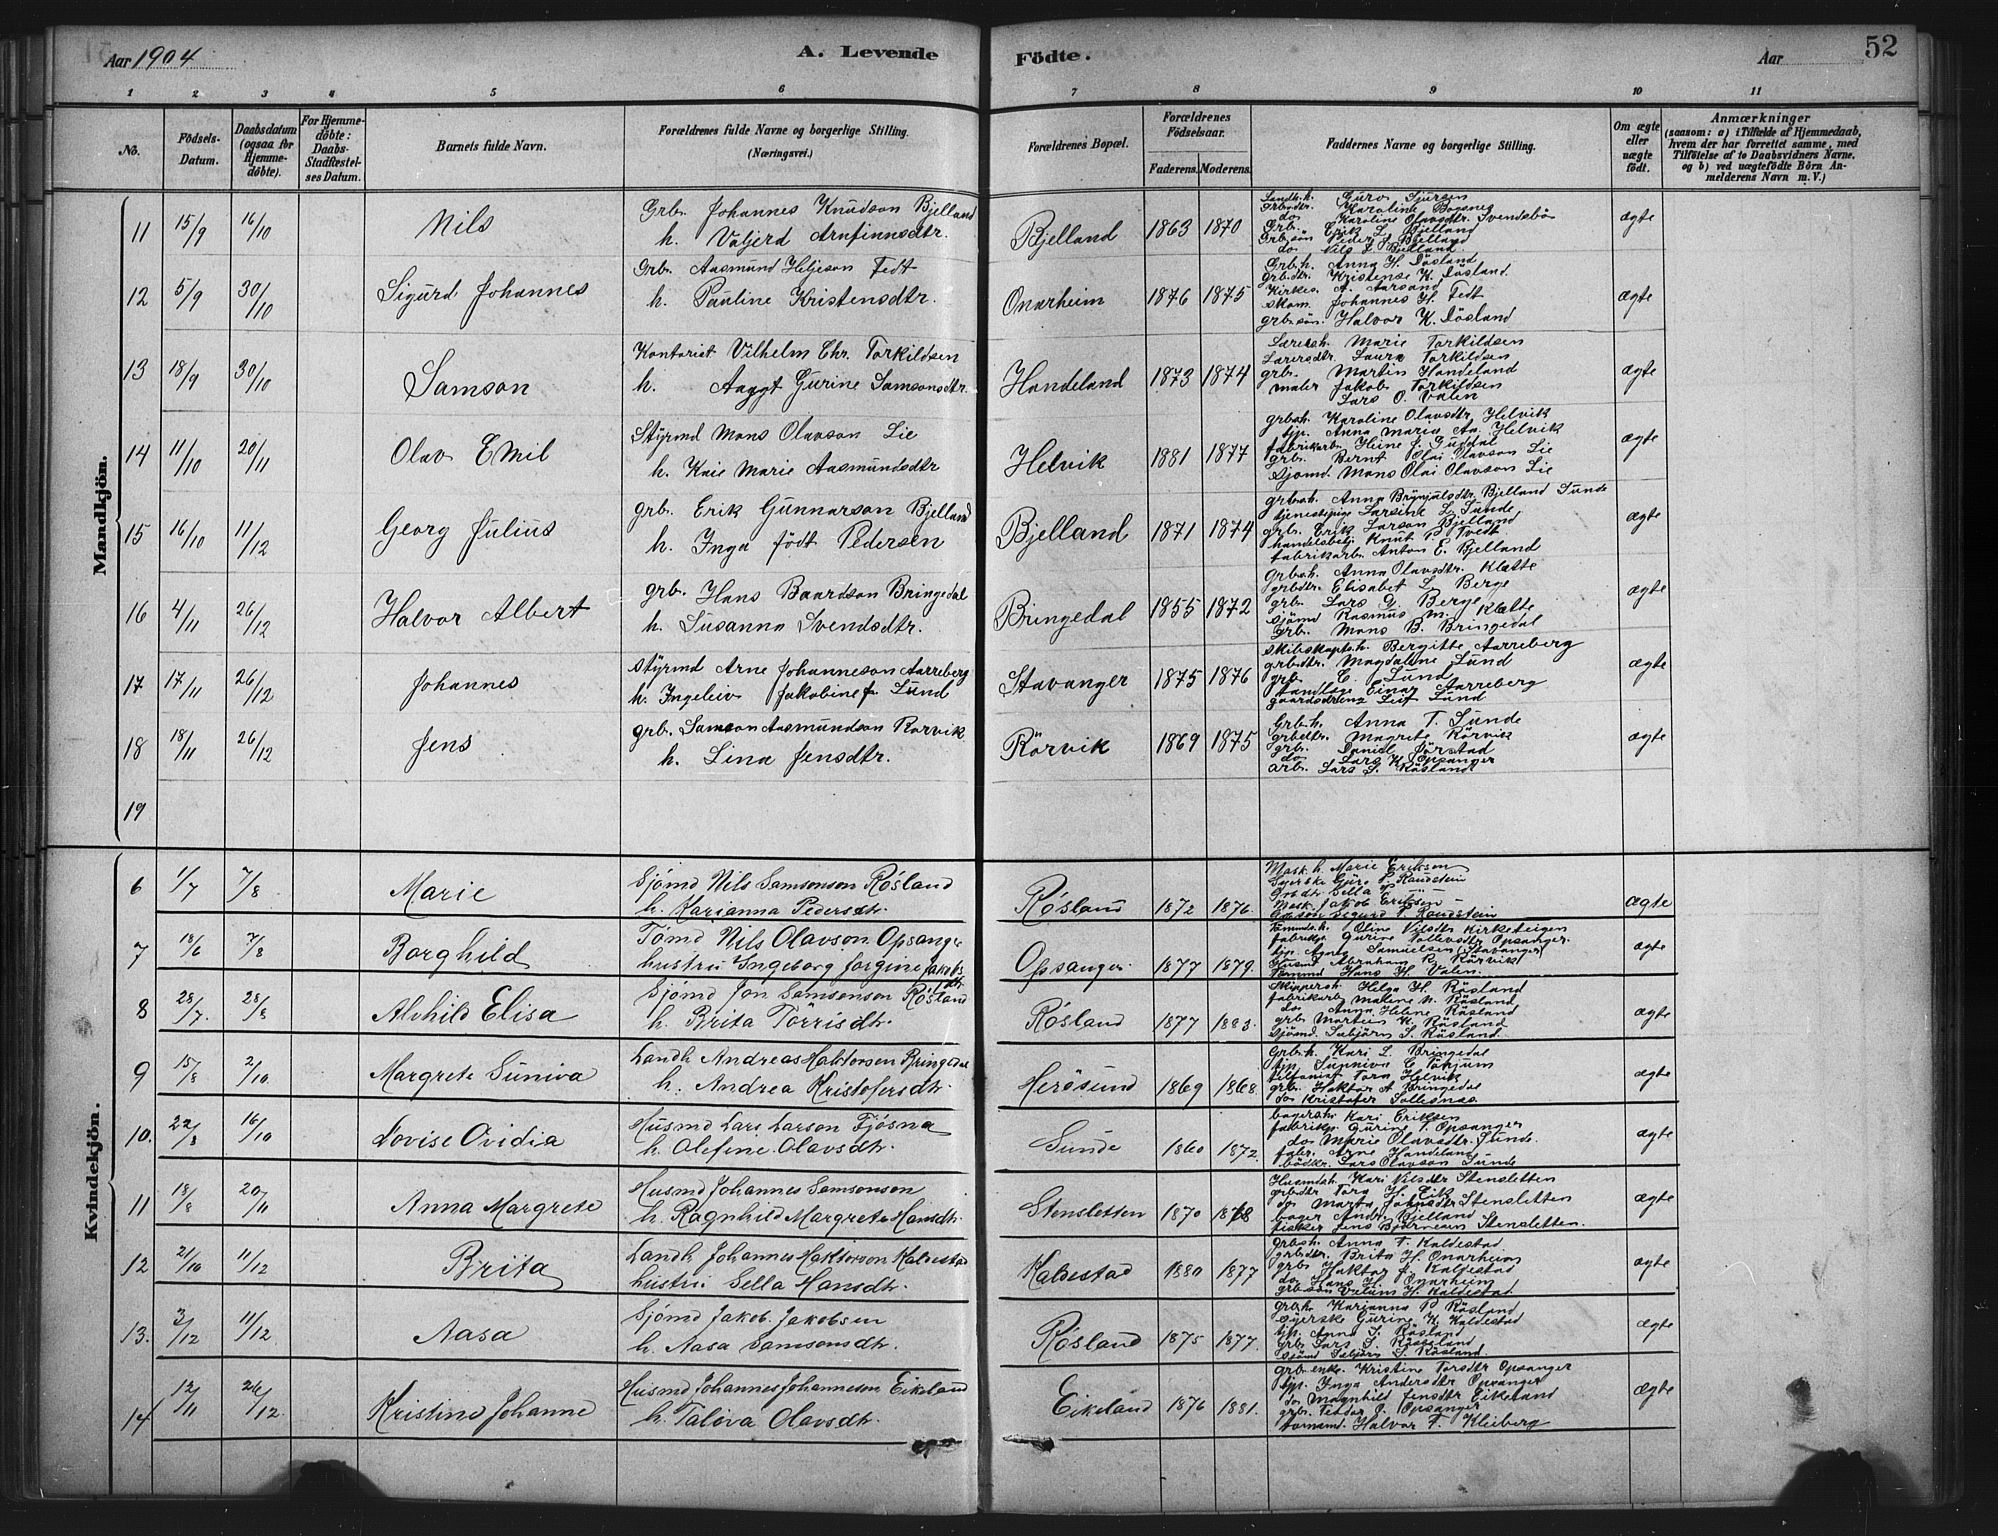 Aar 1904
A. Levende
Födte.
Aar
52
1 2 3 4 5 6 7 8 9 10 11
No.
Födsels-
Datum.
Daabsdatum
(ogsaa for
Hjemme-
döbte).
For Hjemme-
döbte:
Daabs-
Stadfæstel-
ses Datum.
Barnets fulde Navn.
Forældrenes fulde Navne og borgerlige Stilling.
(Næringsvei.)
Forældrenes Bopæl.
Forældrenes
Födselsaar.
Faderens. Moderens.
Faddernes Navne og borgerlige Stilling.
Om ægte
eller
uægte
födt.
Anmærkninger
(saasom: a) i Tilfælde af Hjemmedaab,
hvem der har forrettet samme, med
Tilföielse af to Daabsvidners Navne,
og b) ved uægtefödte Börn An-
melderens Navn m. V.)
Mandkjön.
11 15/9 16/10 Nils
Grbr. Johannes Knudson Bjelland
h. Valjerd Arnfinnsdtr.
Bjelland 1863 1870
Landh.h. Guro Sjursen
Grbrdtr. Karoline Bogsnes
do. Karoline Olavsdtr. Svendsbö
Grb. Erik L. Bjelland
Grb.sön Peder J. Bjelland
do. Nils L. Bjelland.
ægte
12 5/9 30/10 Sigurd Johannes
Grb. Aasmund Heljeson Tedt
h. Pauline Kristensdtr.
Onarheim 1876 1875
Grb.h. Anna H. Dösland
grb.dtr. Kristense K. Dösland
Kirkes. A. Aarsand
Skom. Johannes H. Tedt
grb.sön. Halvor K. Dösland
ægte
13 18/9 30/10 Samson
Kontorist Vilhelm Chr. Torkildsen
h. Aagot Gurine Samsonsdtr.
Handeland 1873 1874
Lærersh. Marie Torkildsen
Lærersdtr. Laura Torkildsen
grb. Martin Handeland
maler Jakob Torkildsen
Lars O. Valen
ægte
14 11/10 20/11 Olav Emil
Styrmd Mons Olavson Lie
h. Kaie Marie Aasmundsdtr
Helvik 1881 1877
grbsh. Karoline Olavsdtr. Helvik
tjp. Anna Maria Aa. Helvik
fabrikarb. Heine J. Guddal
grb. Bernt Olai Olavson Lie
Sjömd. Mons Olai Olavson Lie
ægte
15 16/10 11/12 Georg Julius
grb. Erik Gunnarson Bjelland
h. Inga födt Pedersen
Bjelland 1871 1874
grbrsh. Anna Brynjulsdtr. Bjelland Sunde
tjenestepige Larsine L. Sunde
grb. Erik Larson Bjelland
handelsbetj. Knut P. Tvedt
fabrikarb. Anton E. Bjelland
ægte
16 4/11 26/12 Halvor Albert
grb. Hans Baardson Bringedal
h. Susanna Svendsdtr.
Bringedal 1855 1872
Grbsh. Anna Olavsdtr. Klætte
grbdtr. Elisabet L. Berge
grb. Lars G. Berge
sjömd Rasmus M. Klætte
Grb. Mons B. Bringedal
ægte
17 17/11 26/12 Johannes
Styrmd Arne Johanneson Aarreberg
h. Ingeleiv Jakobine f. Lund
Stavanger 1875 1876
Skibskapt.h. Bergitte Aarreberg
grbdtr. Magdaline Lund
grb. E. Lund
Tandlæge Einar Aarreberg
gaardsdreng Leif Lund
ægte
18 18/11 26/12 Jens
grb. Samson Aasmundson Rørvik
h. Lina Jensdtr.
Rörvik 1869 1875
Grb.h. Anna T. Sunde
grbdtr. Magrete Rörvik
grb. Daniel Jörstad
do Lars K. Opsanger
arb. Lars S. Røsland
ægte
19
Kvindekjön.
6 1/7 7/8 Marie
Sjömd Nils Samsonson Rösland
h. Karianna Pedersdtr.
Rösland 1872 1876.
Mask.h. Marie Eriksen
Syerske Guro P. Raudstein
Grbdtr. Sella
Mask. Jakob Eriksen
Grbsön Sigurd P. Raudstein
ægte
7 18/6 7/8 Borghild
Tömd Nils Olavson Opsanger
hustru Ingeborg Jorgine Jakobsdtr
Opsanger 1877 1879.
Tömmdsh. Oline Nilsdtr Kirketeigen
fabrikp. Gurine Tollevsdtr Opsanger.
tjp. Agnes Samuelsen (Stavanger)
Husmd Abraham P. Rörvik
Tömmd Hans H. Valen.
ægte
8 28/7. 28/8 Alvhild Elisa
Sjömd Jon Samsonson Rösland
h. Brita Törrisdtr.
Rösland 1877 1883.
Skippersh. Helga H. Rösland
fabrikarb. Malene N. Rösland
do Anna Helene Rösland
grb Martein K. Rösland
Sjömd. Sæbjörn S. Rösland.
ægte
9 15/8 2/10 Margrete Suniva
Landh. Andreas Haktorsen Bringedal
h. Andrea Kristofersdtr.
Herösund 1869 1868.
Grb.h. Kari L. Bringedal
tjp. Synniva E. Töhjum
telfonist Tora Helvik
grb. Haktor A. Bringedal
do Kristofer Sollesnes.
ægte
10. 22/8 16/10 Lovise Ovidia
Husmd Lars Larson Fjösna
h. Olefine Olavsdtr.
Sunde 1860 1872.
bagersh. Kari Eriksen
fabrikp. Gurine T. Opsanger
do. Marie Olavsdtr. Sunde.
fabr. Arne Handeland
bödkr. Lars Olavson Sunde
ægte
11 18/8 20/11 Anna Margrete
Husmd Johannes Samsonson
h. Ragnhild Margrete Hansdtr.
Stensletten 1870 1878
Husmdsh. Kari Nilsdtr Stensletten
grbdtr Tora H. Eik
do. Marta Johnsdtr Stensletten
bager Andr. Bjelland
fisker Jens Bjarnesen Stensletten.
ægte
12 21/10 11/12 Brita
Landh. Johannes Haktorson Kaldestad
hustru Sella Hansdtr.
Kaldestad 1880 1877
grbsh. Anna T. Kaldestad
grbdtr. Brita H. Onarheim
grb. Haktor J. Kaldestad
do. Hans H. Onarheim
grb.sön Valum H. Kaldestad.
ægte
13. 3/12 11/12 Aasa
Sjömd Jakob Jakobsen
h. Aasa Samsonsdtr.
Rösland 1875 1877.
grbsh. Karianna P. Rösland
Syerske Gurine K. Kaldestad
tjp. Anna S. Rösland
Grb. Lars S. Rösland
Sjömd Sæbjörn S. Rösland.
ægte
14 12/11 26/12. Kristina Johanne
Husmd Johannes Johanneson Eikeland
h. Taleva Olavsdtr.
Eikeland 1876 1881.
grb.enke. Kristine Torsdtr Opsanger
tjp. Inga Andersdtr Opsanger
do. Magnhild Jensdtr Eikeland
grb. Teodor O. Opsanger
Tömmmd. Halvor T. Kleiberg
ægte